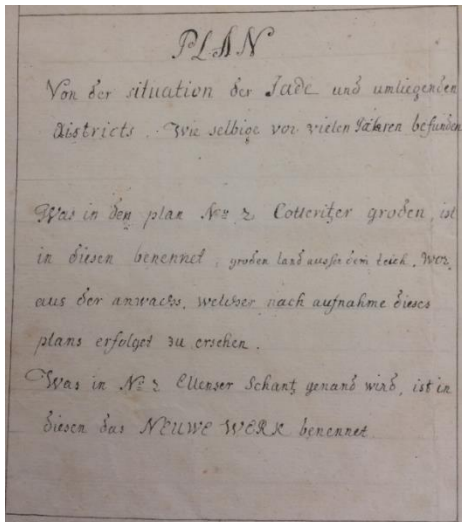 PLAN
Von der situation der Jade und umliegenden
districts. Wie selbige vor vielen Jahren befunden
Was in den plan No: 2 groden, ist
in diesen benennet, groden land ausser dem teich. Wor,
aus der anwachs, welcher nach aufnahme dieses
plans erfolget zu ersehen.
Was in No: 2 Ellenser Schantz genand wird, ist in
diesen das NEUWE WERK benennet.